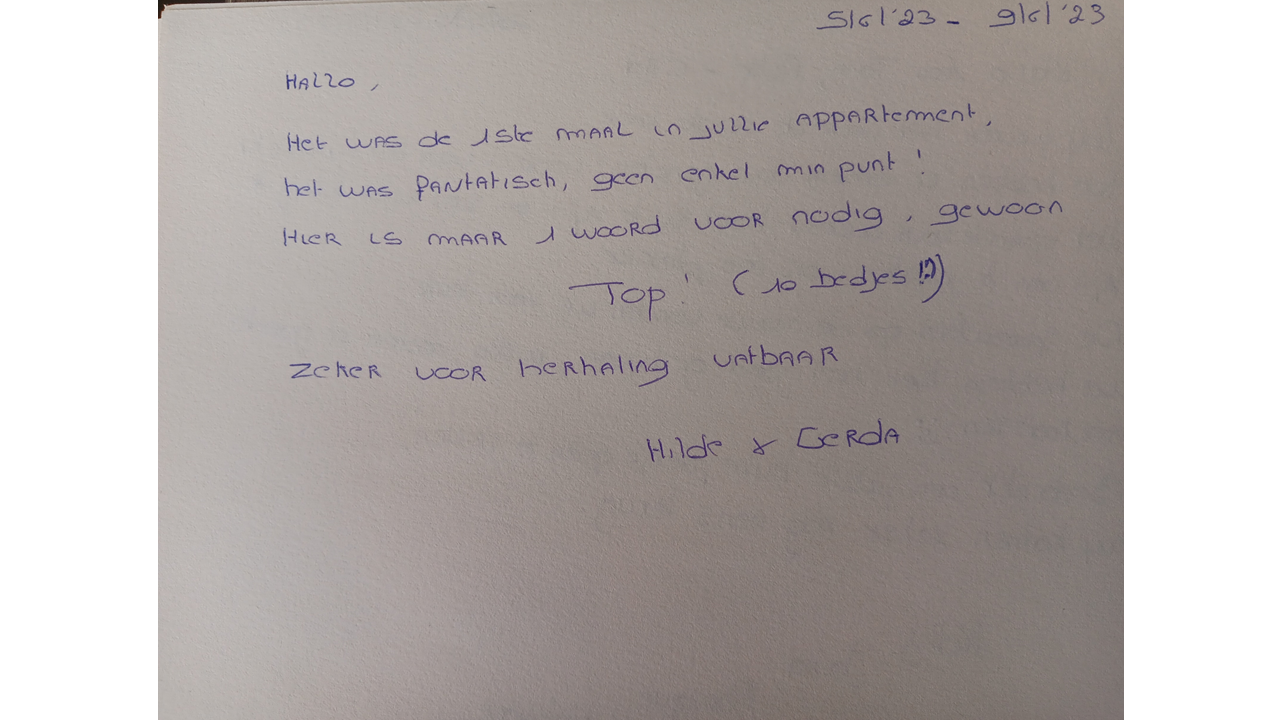 5/6/'23 - 9/6/'23
Hallo,
Het was de 1ste maal in jullie appartement,
het was fantatisch, geen enkel min punt!
Hier is maar 1 woord voor nodig, gewoon
Top! (10 bedjes!?)
Zeker voor herhaling vatbaar
Hilde & Gerda